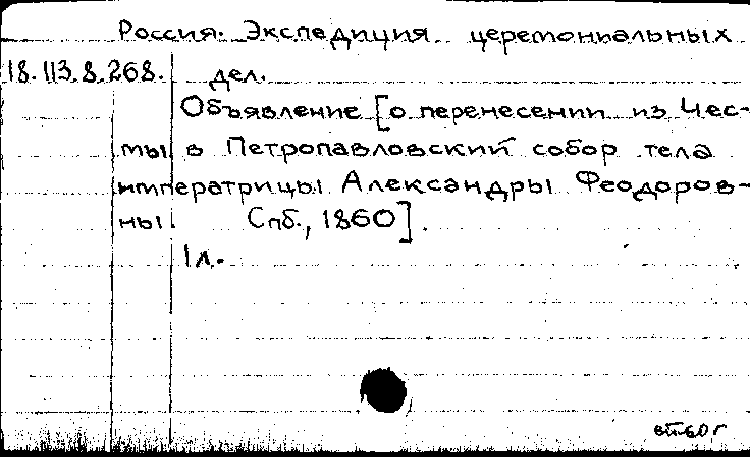 Россия. Экспедиция церемониальных
18.113.8.268. дел.
Объявление [о перенесении из Чес-
мы в Петропавловский собор тела
императрицы Александры Феодоров-
ны. Спб., 1860].
1 л.